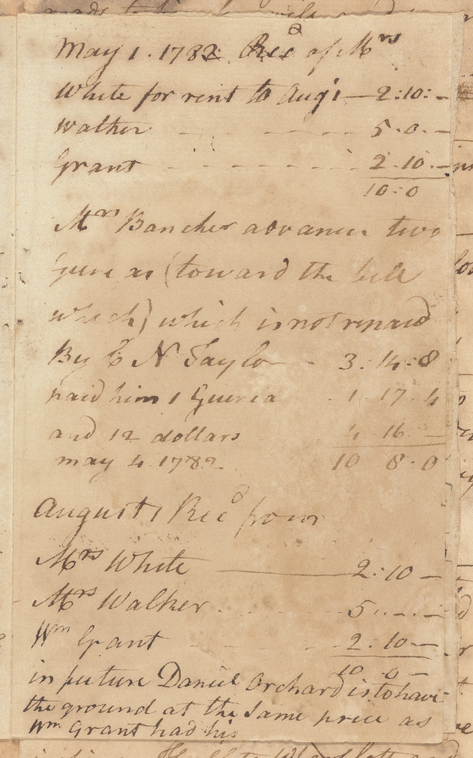 May 1. 1782 Recd of Mrs
White for rent to Augt 1 — 2:10:—
Walker - - - 5.0.—
Grant - - - - 2.10.—
10:0
Mrs Bancker advance two
(toward the bill
which) which is not repaid
By C N Taylo - 3:14:8
paid him 1 Guinea . 1.17.4
and 12 dollars 4 16 —
may 4 1782. 10 8.0
August 1 Recd from
Mrs White —— 2:10 —
Mrs Walker. 5 — . —
Wm Grant 2:10 —
10 0 —
in future Daniel Orchard is to have
the ground at the same price as
Wm Grant had his